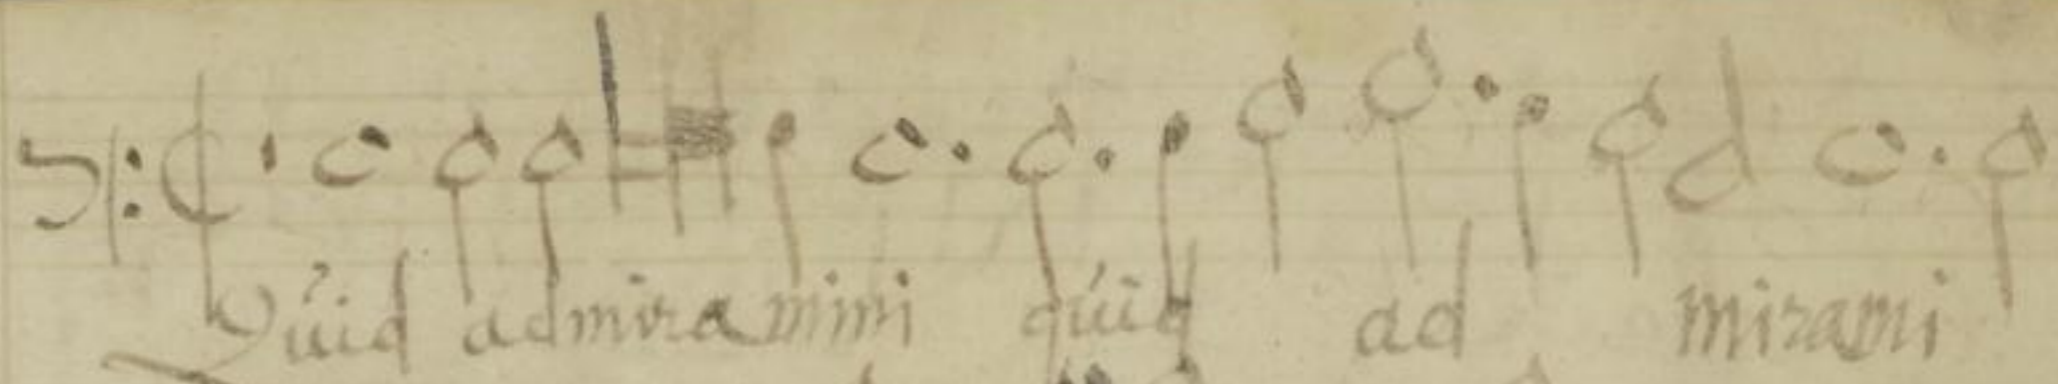 Quid admiramini quid ad mirami